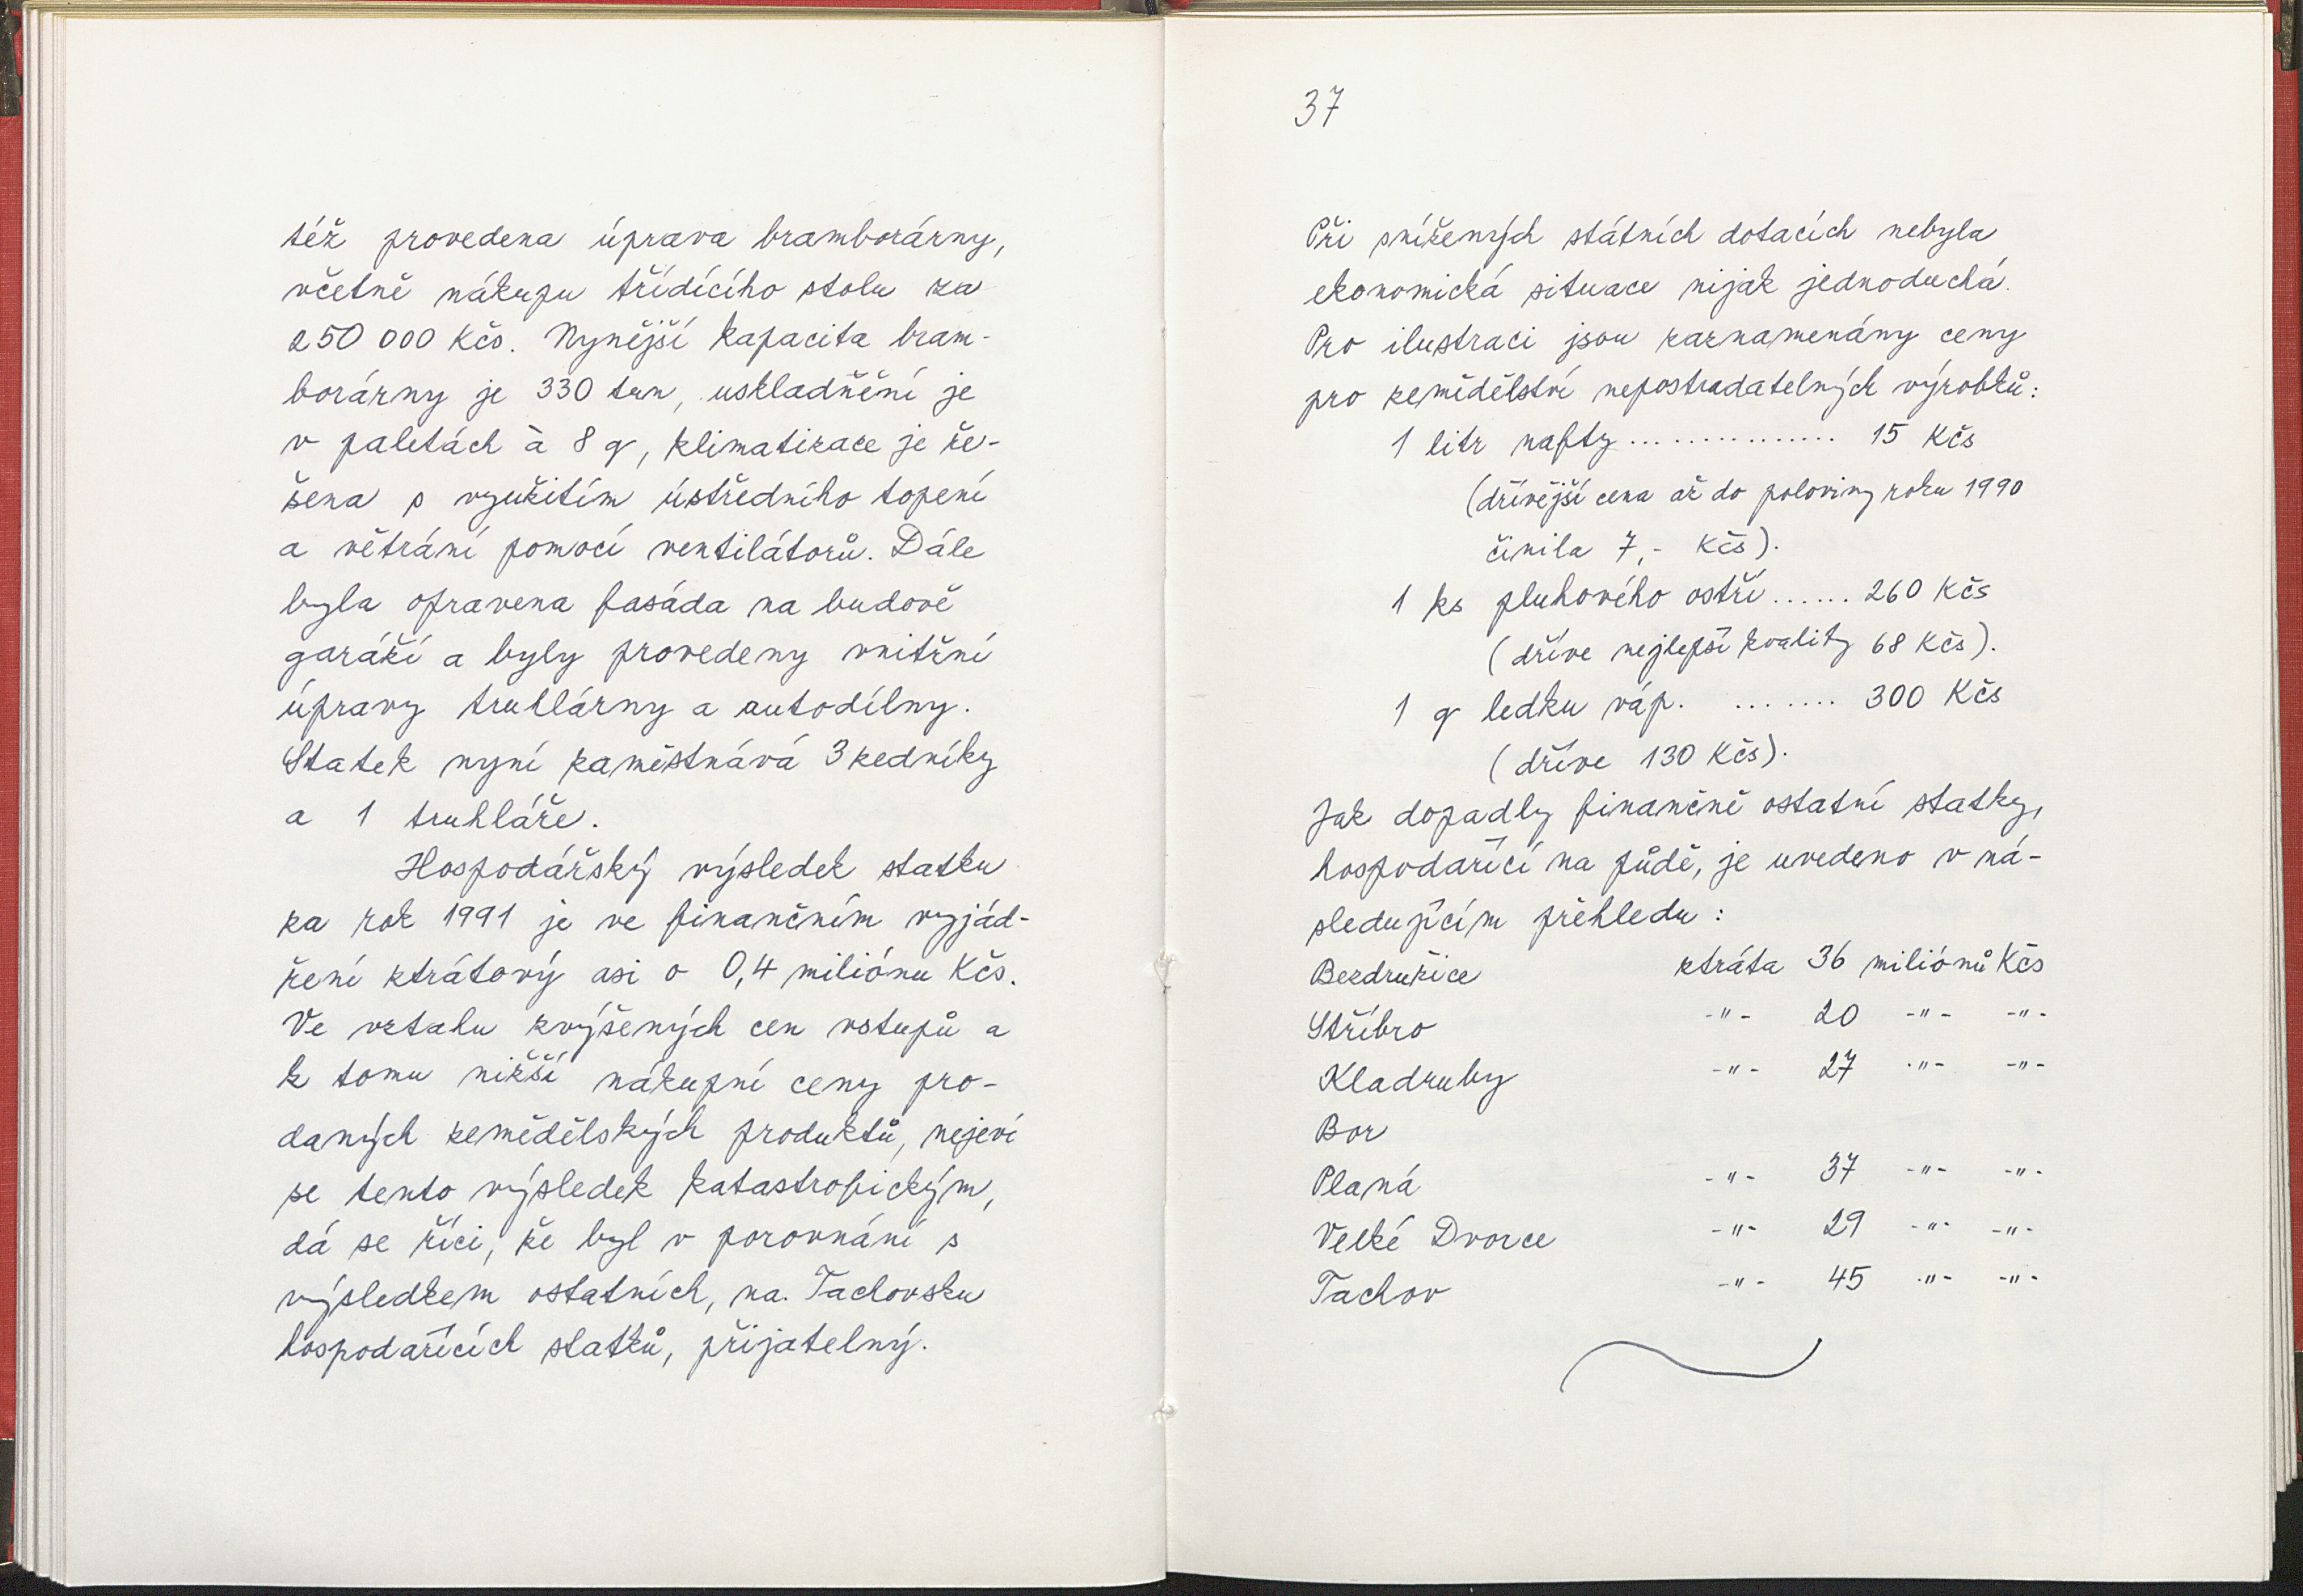 též provedena úprava bramborárny,
včetně nákupu třídícího stolu za
250 000 Kčs. Nynější kapacita bram-
borárny je 330 tun, uskladňění je
v paletách à 8 q, klimatizace je ře-
šena s využitím ústředního topení
a větrání pomocí ventilátorů. Dále
byla opravena fasáda na budově
garáží a byly provedeny vnitřní
úpravy truhlárny a autodílny.
Statek nyní zaměstnává 3 zedníky
a 1 truhláře.
Hospodářský výsledek statku
za rok 1991 je ve finančním vyjád-
ření ztrátový asi o 0,4 miliónu Kčs.
Ve vztahu zvýšených cen vstupů a
k tomu nižší nákupní ceny pro-
daných zemědělských produktů, nejeví
se tento výsledek katastrofickým,
dá se říci, že byl v porovnání s
výsledkem ostatních, na Tachovsku
hospodařících statků, přijatelný.
37
Při snížených státních dotacích nebyla
ekonomická situace nijak jednoduchá.
Pro ilustraci jsou zaznamenány ceny
pro zemědělství nepostradatelných výrobků:
1 litr nafty ............... 15 Kčs
(dřívější cena až do poloviny roku 1990
činila 7,- Kčs).
1 ks pluhového ostří ...... 260 Kčs
(dříve nejlepší kvality 68 Kčs).
1 q ledku váp. ....... 300 Kčs
(dříve 130 Kčs).
Jak dopadly finančně ostatní statky,
hospodařící na půdě, je uvedeno v ná-
sledujícím přehledu:
Bezdružice ztráta 36 miliónů Kčs
Stříbro -"- 20 -"- -"-
Kladruby -"- 27 -"- -"-
Bor
Planá -"- 37 -"- -"-
Velké Dvorce -"- 29 -"- -"-
Tachov -"- 45 -"- -"-